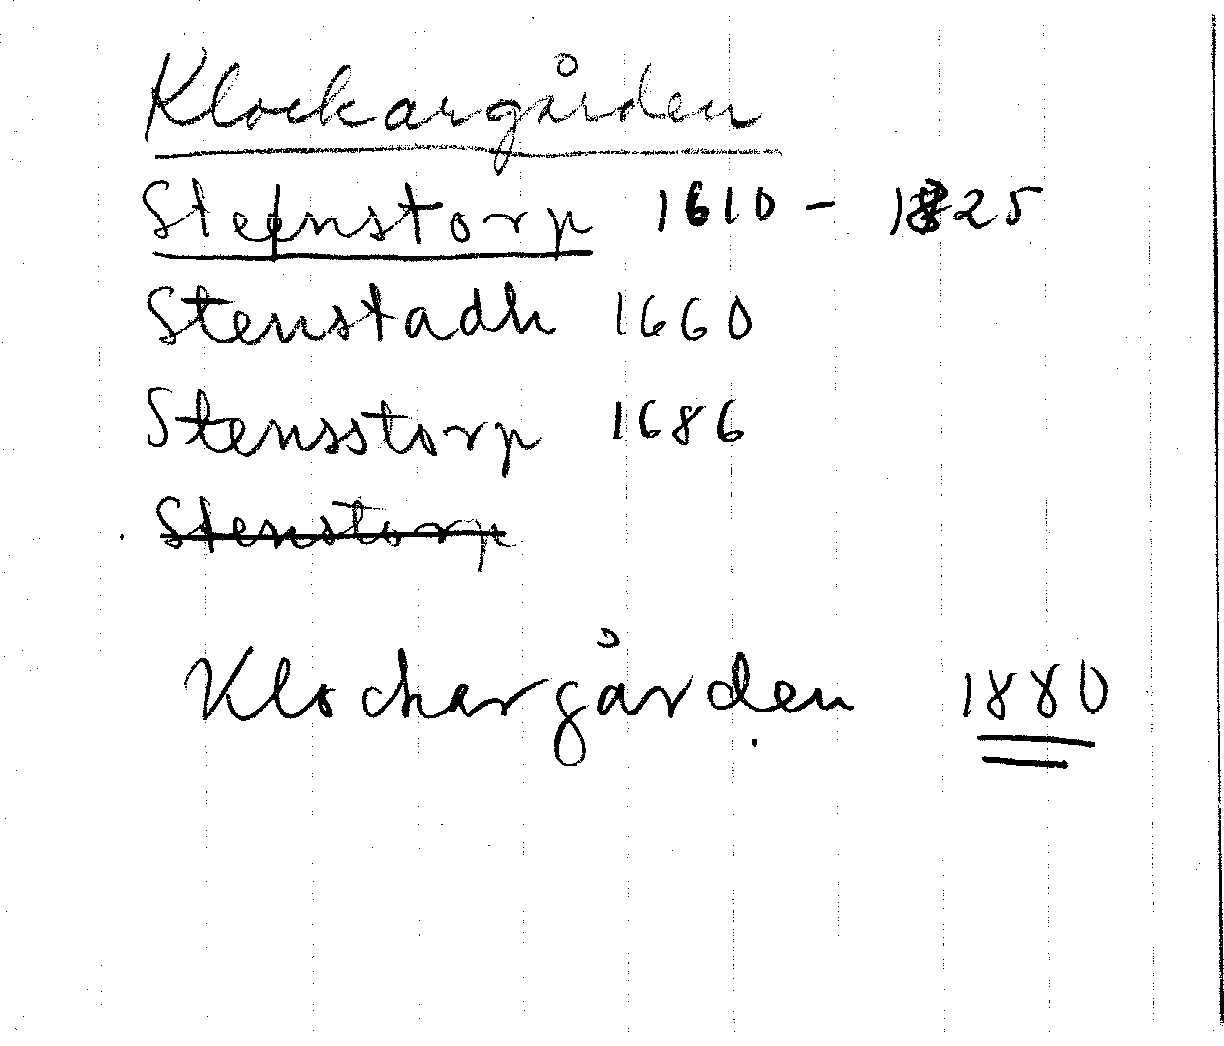 Klockargården
Stenstorp 1610 - 1825
Stenstadh 1660
Stensstorp 1686
Stenstorp
Klockargården 1880